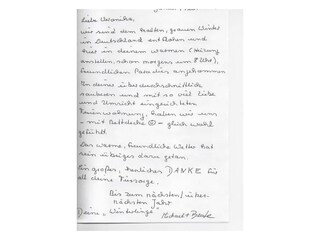 Liebe Veronika,
wir sind dem kalten, grauen Winter
in Deutschland entflohen und
hier in deinem warmen (Heizung
anstellen, schon morgens um 8 Uhr),
freundlichen Paradies angekommen.
In deiner überdurchschnittlich
sauberen und mit so viel Liebe
und Umsicht eingerichteten
Ferienwohnung, haben wir uns
– mit Bettdecke ☺ – gleich wohl
gefühlt.
Das warme, freundliche Wetter hat
sein übriges dazu getan.
Ein großes, herzliches DANKE für
all deine Fürsorge.
Bis zum nächsten / im
nächsten Jahr
Deine „Winterlinge"